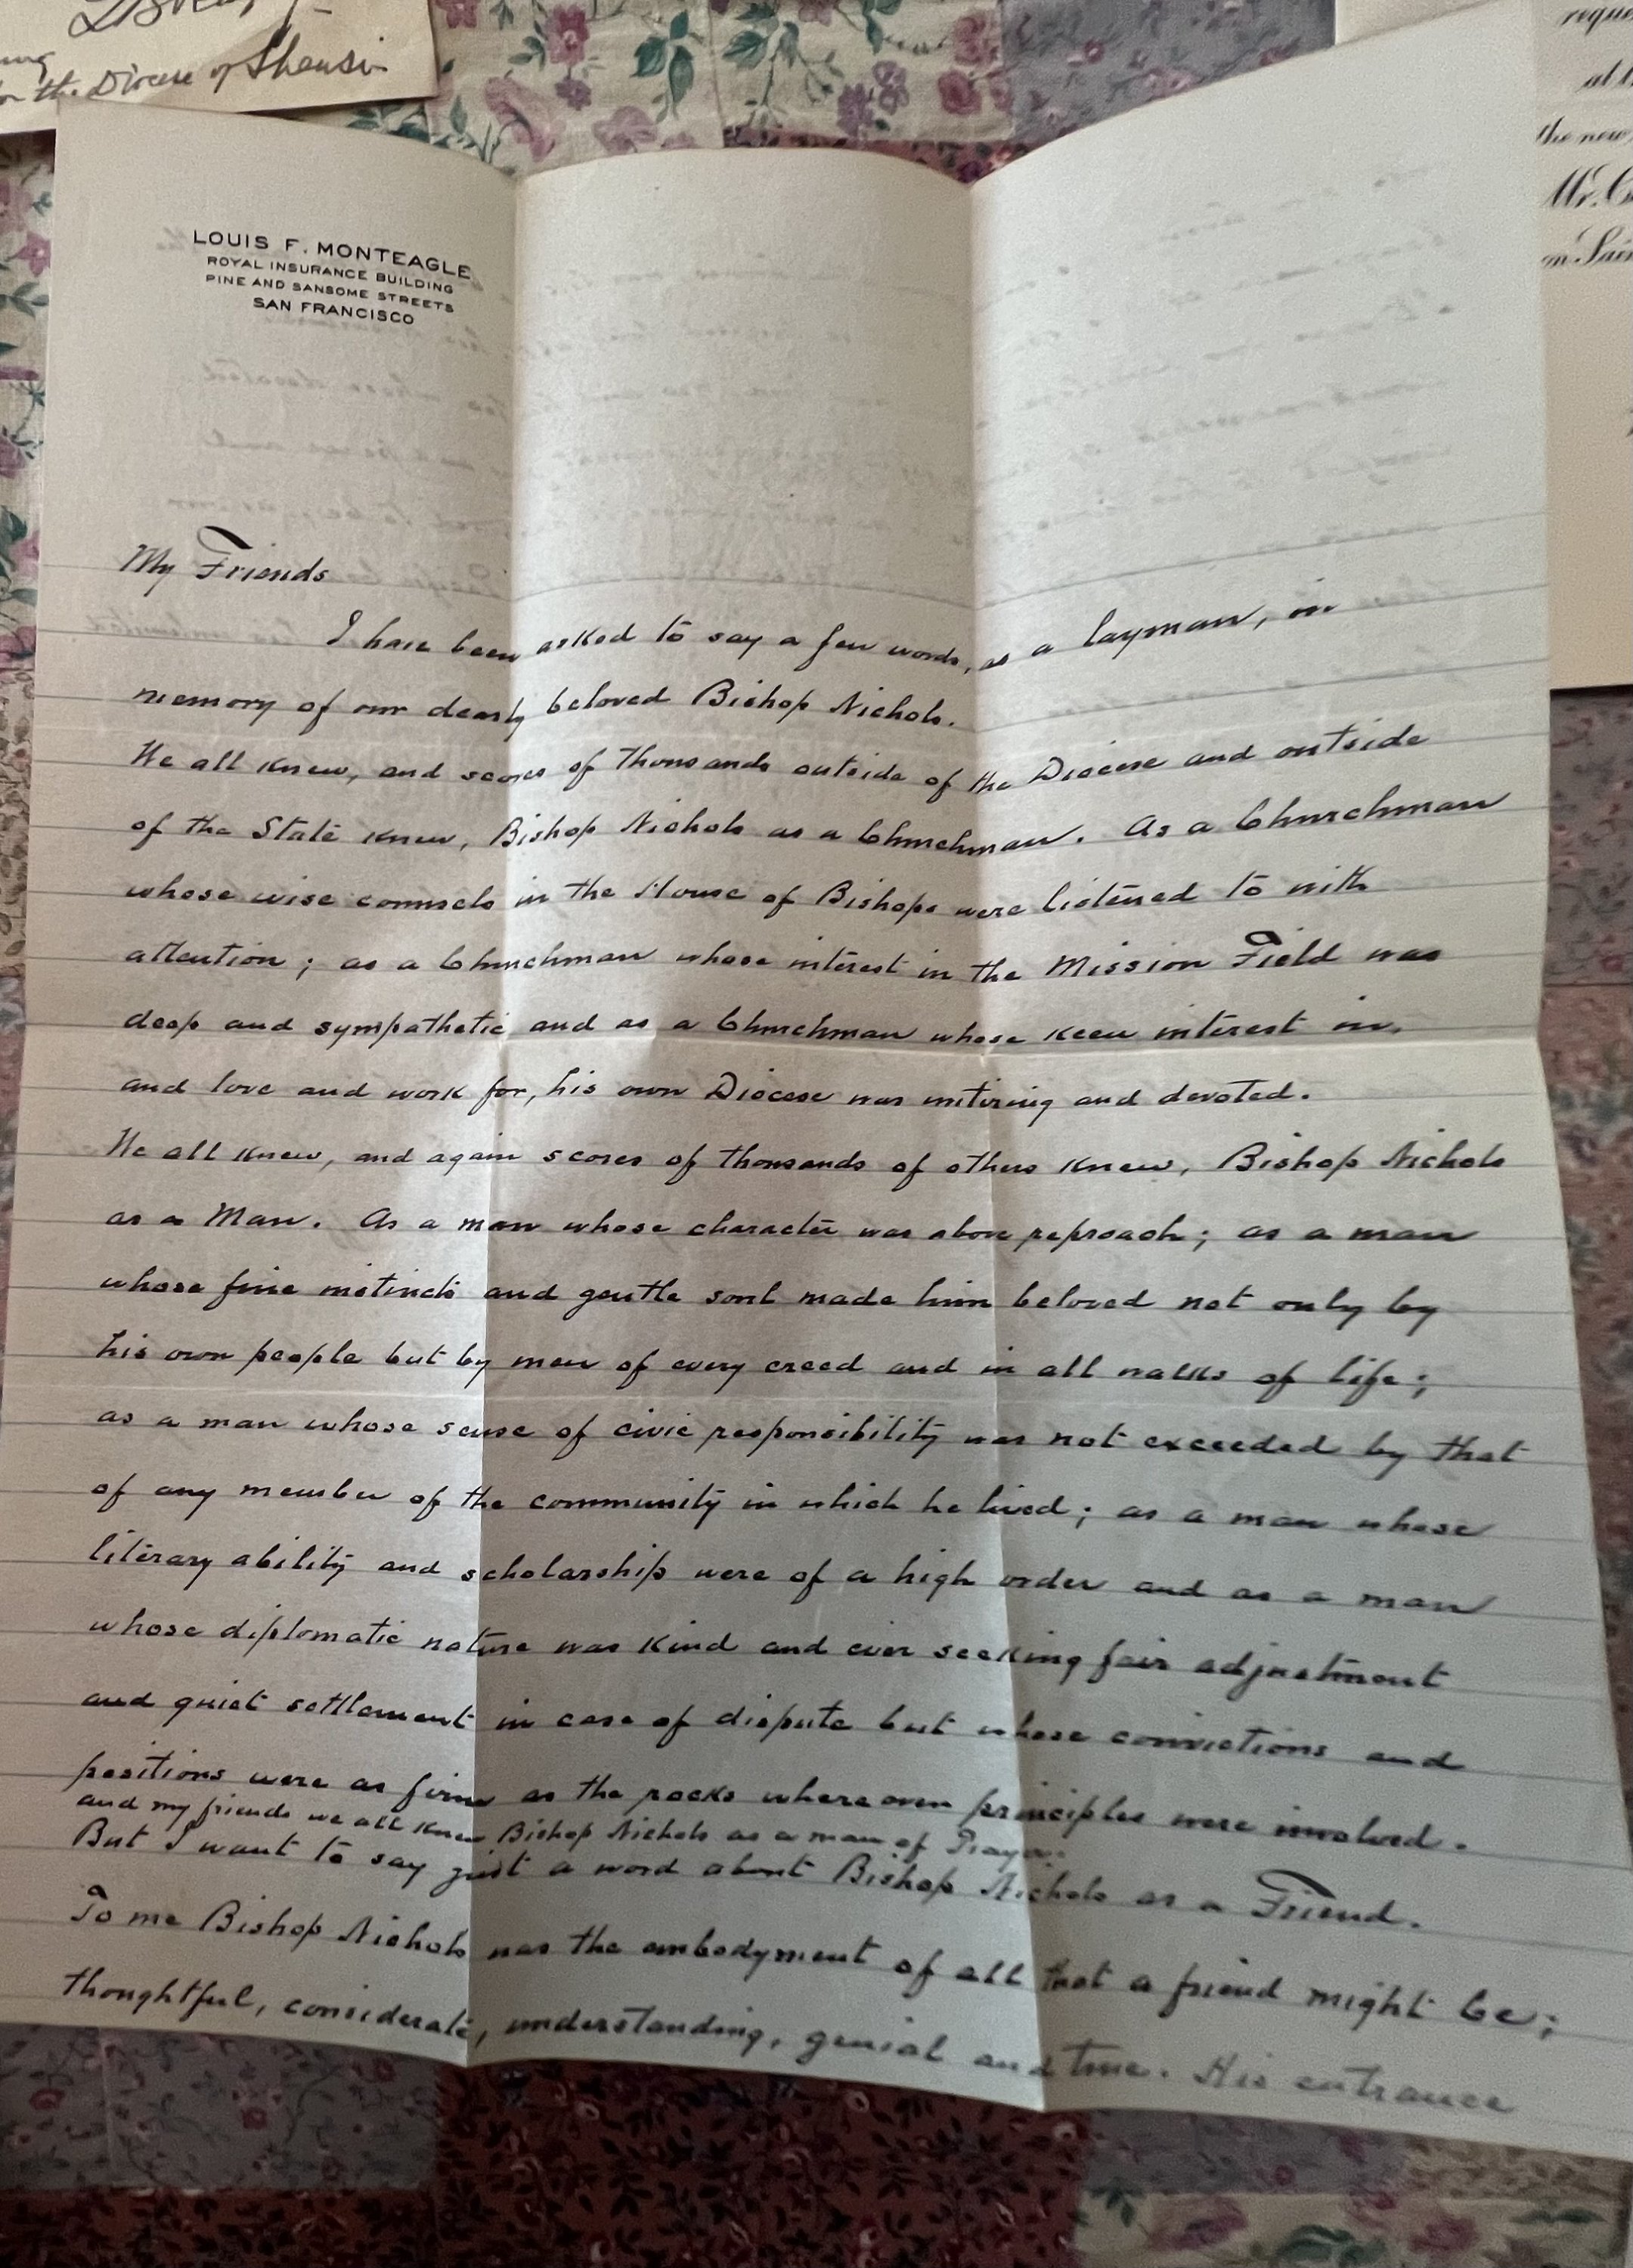 the Diocese of Shensi
LOUIS F. MONTEAGLE
ROYAL INSURANCE BUILDING
PINE AND SANSOME STREETS
SAN FRANCISCO
My Friends
I have been asked to say a few words, as a layman, in
memory of our dearly beloved Bishop Nichols.
We all knew, and scores of thousands outside of the Diocese and outside
of the State knew, Bishop Nichols as a Churchman. As a Churchman
whose wise counsels in the House of Bishops were listened to with
attention; as a Churchman whose interest in the Mission Field was
deep and sympathetic and as a Churchman whose keen interest in,
and love and work for, his own Diocese was untiring and devoted.
We all knew, and again scores of thousands of others knew, Bishop Nichols
as a Man. As a man whose character was above reproach; as a man
whose fine instincts and gentle soul made him beloved not only by
his own people but by men of every creed and in all walks of life;
as a man whose sense of civic responsibility was not exceeded by that
of any member of the community in which he lived; as a man whose
literary ability and scholarship were of a high order and as a man
whose diplomatic nature was kind and ever seeking fair adjustment
and quiet settlement in case of dispute but whose convictions and
positions were as firm as the rocks whereever principles were involved.
and my friends we all knew Bishop Nichols as a man of Prayer.
But I want to say just a word about Bishop Nichols as a Friend.
To me Bishop Nichols was the embodyment of all that a friend might be;
thoughtful, considerate, understanding, genial and true. His entrance
the new
Mr.